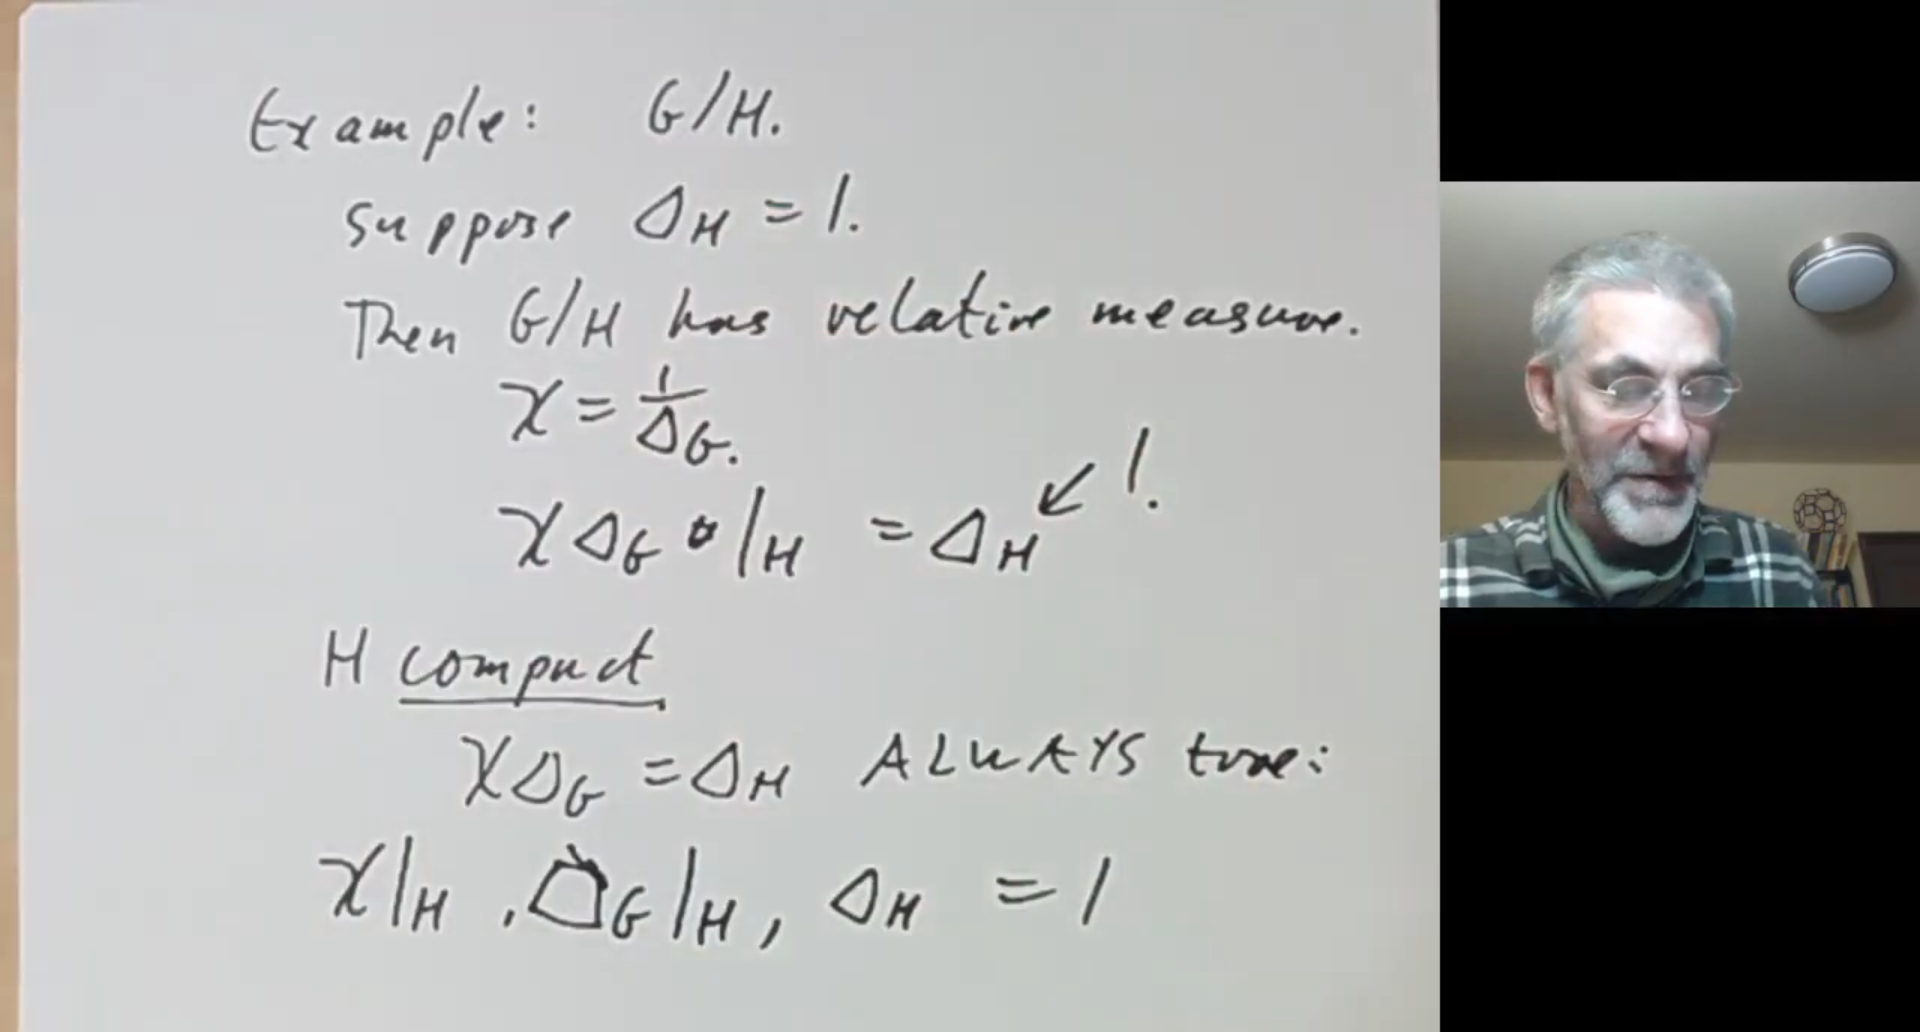 Example: G/H.
suppose Δ_H = 1.
Then G/H has relative measure.
χ = 1/Δ_G.
χ Δ_G |_H = Δ_H ↙ !.
H compact
χΔ_G = Δ_H ALWAYS true:
χ|_H , Δ_G|_H , Δ_H = 1